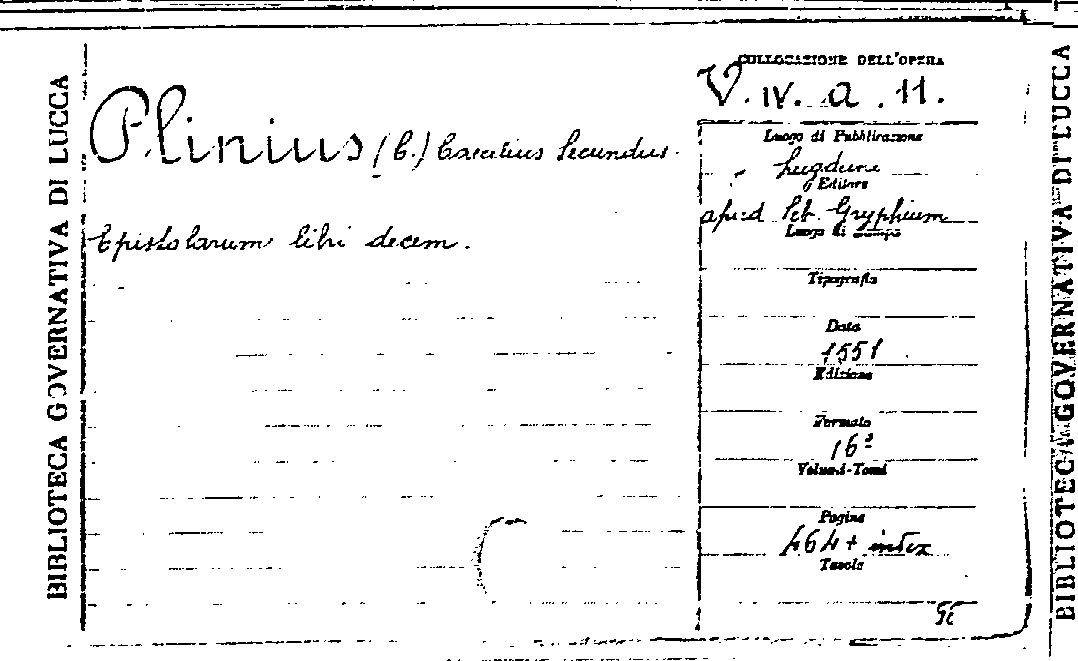 BIBLIOTECA GOVERNATIVA DI LUCCA
Plinius (C.) Caecilius Secundus.
Epistolarum libri decem.
COLLOCAZIONE DELL'OPERA
V. IV. a. 11.
Luogo di Pubblicazione
Lugduni
Editore
apud Seb. Gryphium
Luogo di stampa
Tipografia
Data
1551
Edizione
Formato
16º
Volumi-Tomi
Pagine
464 + index
Tavole
BIBLIOTECA GOVERNATIVA DI LUCCA